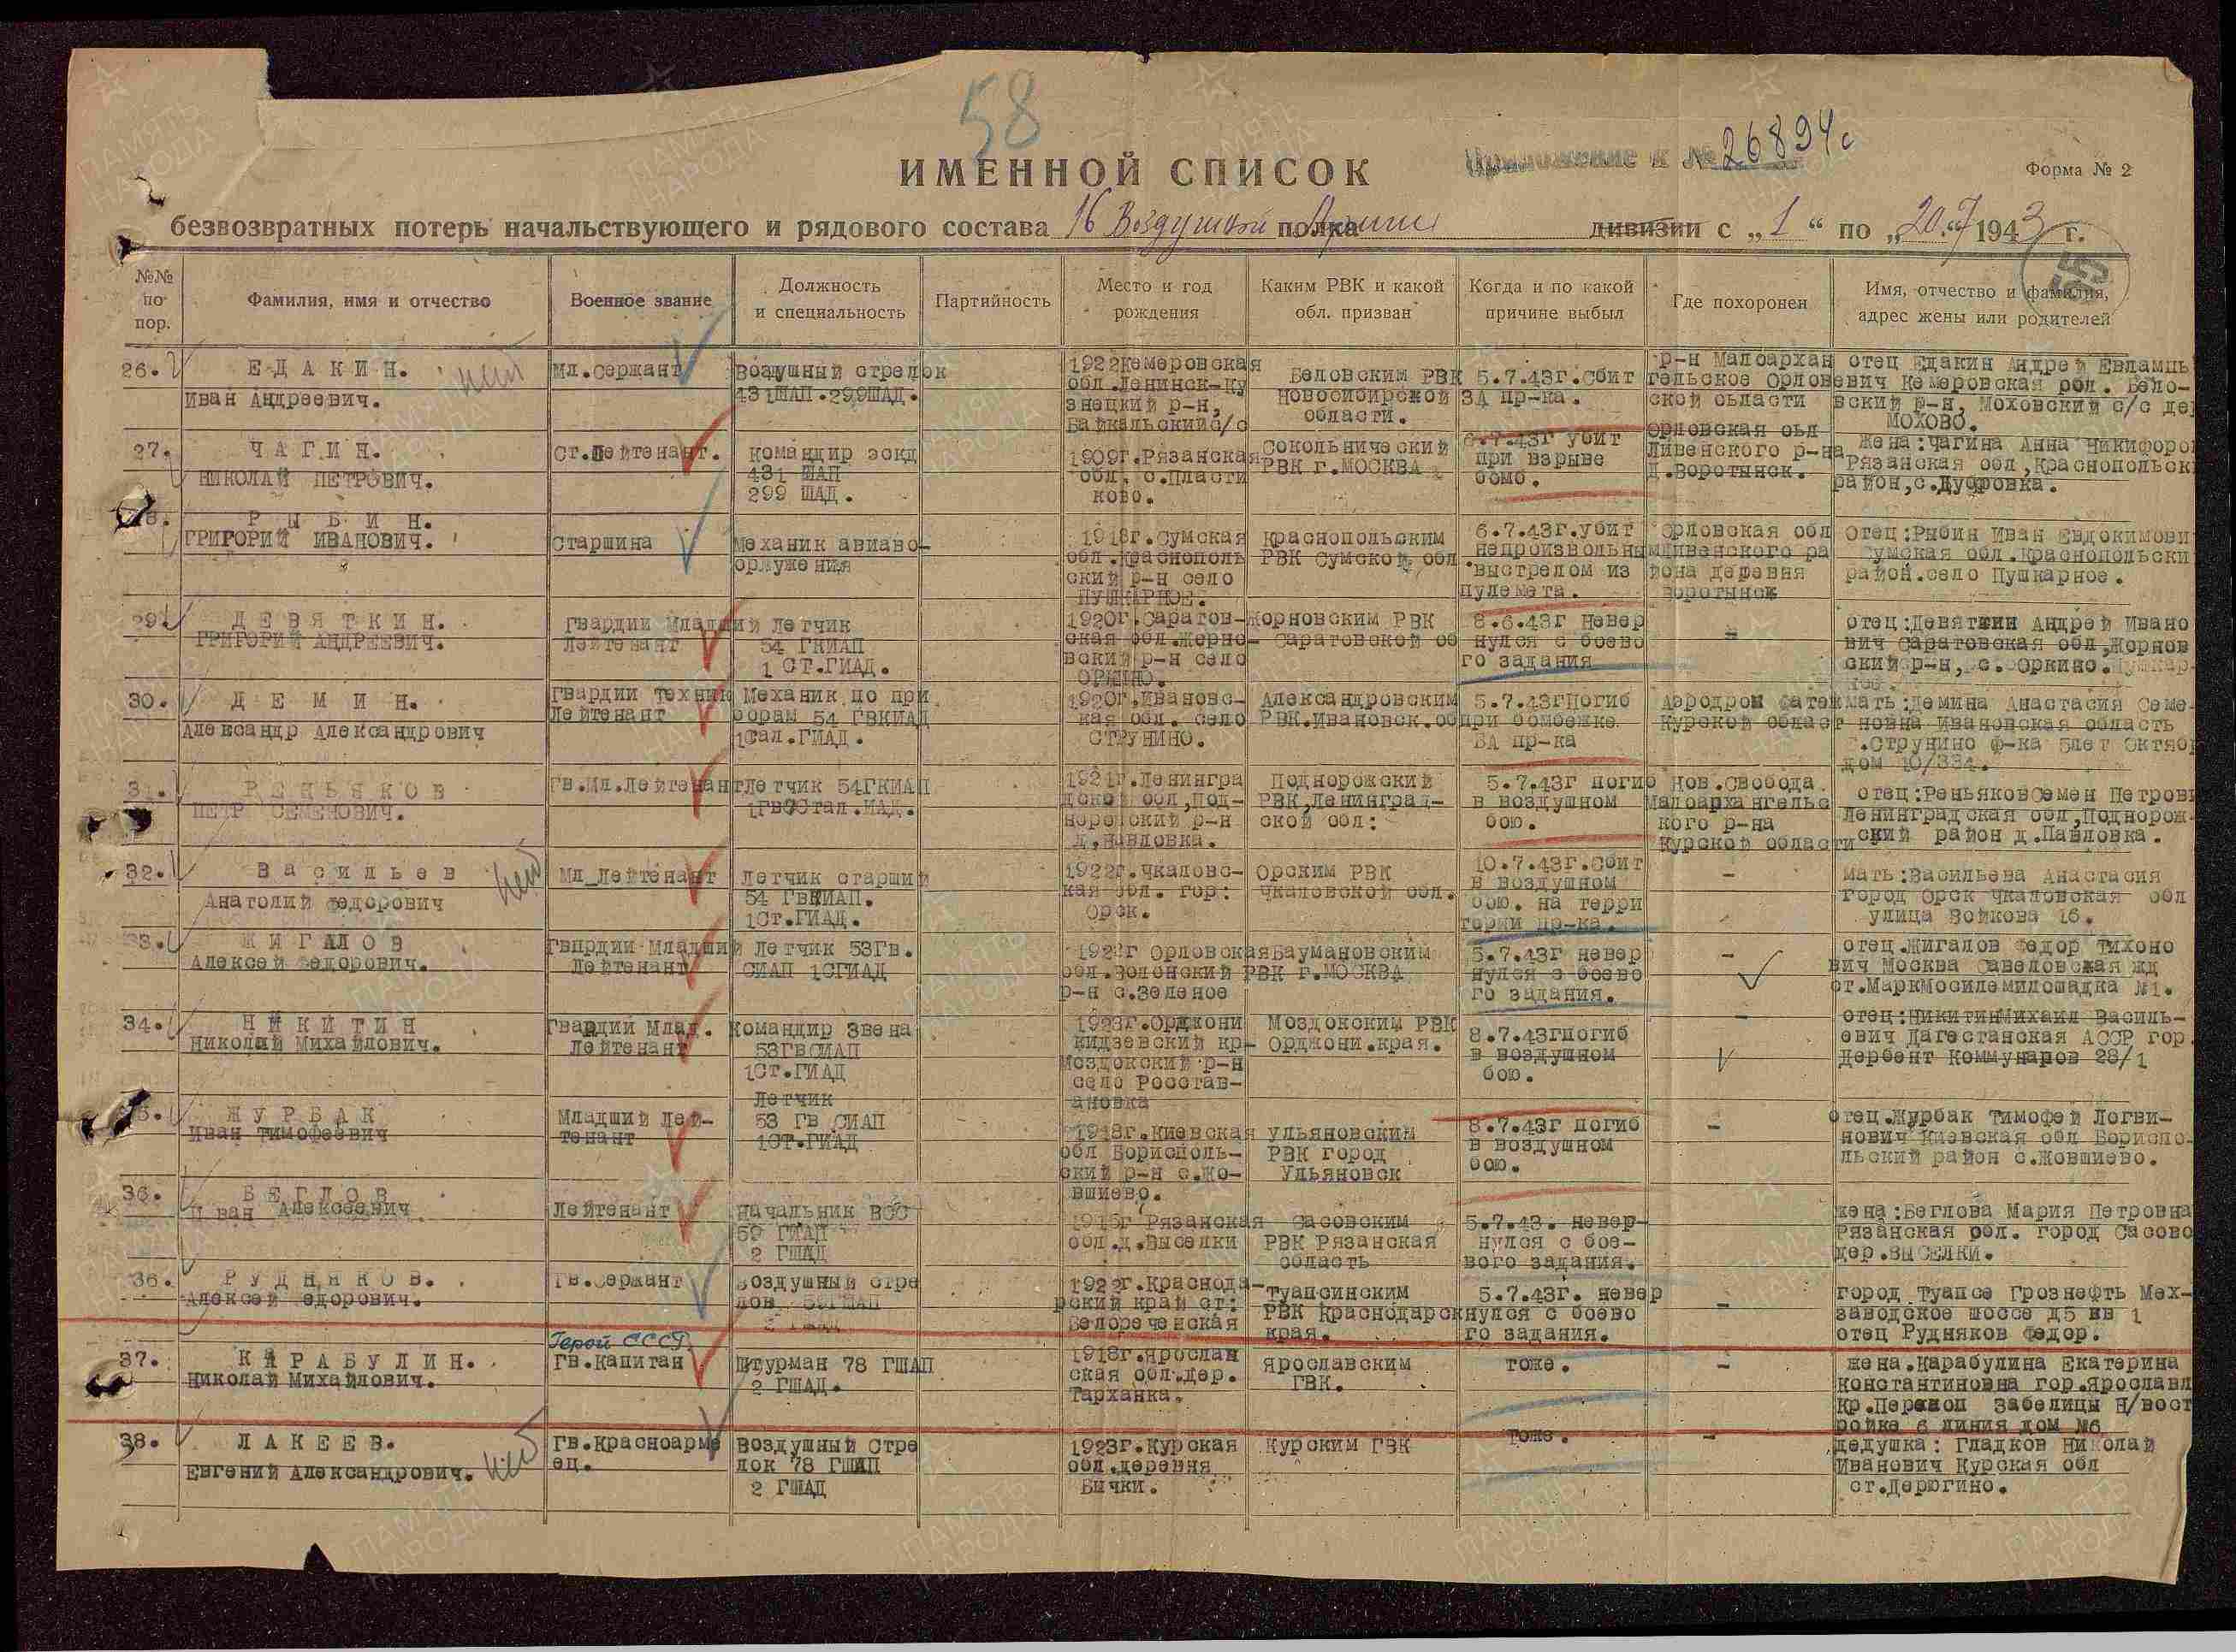 58
Приложение к № 26894с
ИМЕННОЙ СПИСОК
Форма № 2
безвозвратных потерь начальствующего и рядового состава 16 Воздушной полка Армии дивизии с „1“ по „20.“7 1943 г.
55
№№ по пор.
Фамилия, имя и отчество
Военное звание
Должность и специальность
Партийность
Место и год рождения
Каким РВК и какой обл. призван
Когда и по какой причине выбыл
Где похоронен
Имя, отчество и фамилия, адрес жены или родителей
26.
ЕДАКИН.
Иван Андреевич.
Мл.сержант
Воздушный стрелок
431ШАП.299ШАД.
1922Кемеровская
обл.Ленинск-Ку
знецкий р-н,
Байкальскийс/с
Беловским РВК
Новосибирской
области.
5.7.43г.Сбит
ЗА пр-ка.
р-н Малоархан
гельское Орлов
ской области
отец Едакин Андрей Евлампь
евич Кемеровская рол. Бело-
вский р-н, Моховский с/с де
МОХОВО.
27.
ЧАГИН.
НИКОЛАЙ ПЕТРОВИЧ.
Ст.Лейтенант.
Командир эскд
431 ШАП
299 ШАД.
1909г.Рязанская
обл. с.Пласти
ково.
Сокольнический
РВК г.МОСКВА
6.7.43г убит
при взрыве
бомб.
Орловская обл
Ливенского р-на
Д.Воротынск.
Жена:Чагина Анна Никифоро
Рязанская обл,Краснопольск
район,с.Дубровка.
РЫБИН.
ГРИГОРИЙ ИВАНОВИЧ.
Старшина
Механик авиаво-
оружения
1918г.Сумская
обл.Краснополь
ский р-н село
ПУШКАРНОЕ.
Краснопольским
РВК Сумской обл
6.7.43г.убит
непроизвольным
.выстрелом из
пулемета.
Орловская обл
Ливенского ра
йона деревня
Воротынск
Отец:Рыбин Иван Евдокимови
Сумская обл.Краснопольски
район.село Пушкарное.
29.
ДЕВЯТКИН.
ГРИГОРИЙ АНДРЕЕВИЧ.
Гвардии Младший
Лейтенант
Летчик
54 ГКИАП
1 СТ.ГИАД.
1920г.Саратов-
ская обл.Жерно-
вский р-н село
ОРКИНО.
Жорновским РВК
Саратовской об
8.6.43г Невер
нулся с боево
го задания
-
отец:Девяткин Андрей Ивано
вич Саратовская обл,Жорнов
ский р-н, с. Оркино.
30.
ДЕМИН.
Александр Александрович
Гвардии техник
Лейтенант
Механик по при
борам 54 ГВКИАД
1Сал.ГИАД.
1920г.Ивановс-
кая обл. село
СТРУНИНО.
Александровским
РВК.Ивановск.об
5.7.43гПогиб
при бомбежке
ВА пр-ка
Аэродром Фатеж
Курской област
мать:Демина Анастасия Семе-
новна Ивановская область
г.Струнино ф-ка 5лет Октяб
дом 10/334.
31.
РЕНЬЯКОВ
ПЕТР СЕМЕНОВИЧ.
Гв.Мл.Лейтенант
Летчик 54ГКИАП
1ГвСтал.ИАД.
1921г.Ленингра
дской обл,Под-
порожский р-н
д.Павловка.
Поднорожский
РВК,Ленинград-
ской обл:
5.7.43г погиб
в воздушном
бою.
Нов.Свобода.
Малоархангельс
кого р-на
Курской области
отец:РеньяковСемен Петрови
Ленинградская обл,Поднорож-
ский район д.Павловка.
32.
Васильев
Анатолий Федорович
Мл_Лейтенант
Летчик старший
54 ГВКИАП.
1СТ.ГИАД.
1922г.Чкаловс-
кая обл. гор:
Орск.
Орским РВК
Чкаловской обл.
10.7.43г.Сбит
в воздушном
бою. на терри
тории пр-ка.
-
мать:Васильева Анастасия
Город Орск Чкаловская обл
улица Войкова 16.
33.
ЖИГАЛОВ
Алексей Федорович.
Гвпрдии Младший
Лейтенант
Летчик 53Гв.
СИАП 1СГИАД
1922г Орловская
обл.Золонский
р-н с.Зеленое
Баумановским
РВК г.МОСКВА
5.7.43г невер
нулся с боево
го задания.
-
отец.Жигалов Федор Тихоно
вич Москва Савеловская жд
ст.МаркМосилемилошадка №1.
34.
НИКИТИН
Николай Михайлович.
Гвардии Млад.
Лейтенант
Командир Звена
53ГВСИАП
1СТ.ГИАД
1923г.Орджони
кидзевский кр-
Моздокский р-н
село Росстав-
ановка
Моздокским РВК
Орджони.края.
8.7.43гпогиб
в воздушном
бою.
-
отец:НикитинМихаил Василь-
евич Дагестанская АССР гор.
Дербент Коммунаров 28/1
35.
ЖУРБАК
Иван Тимофеевич
Младший Лей-
тенант
Летчик
53 ГВ СИАП
1СТ.ГИАД
1918г.Киевская
обл Борисполь-
ский р-н с.Жо-
вшиево.
Ульяновским
РВК город
Ульяновск
8.7.43г погиб
в воздушном
бою.
-
отец.Журбак Тимофей Логви-
нович Киевская обл Бориспо-
льский район с.Жовшиево.
36.
БЕГЛОВ
Иван Алексеевич
Лейтенант
Начальник ВСС
59 ГШАП
2 ГШАД
1915г Рязанская
обл.д.Выселки
Сасовским
РВК Рязанская
область
5.7.43. невер-
нулся с бое-
вого задания.
жена:Беглова Мария Петровна
Рязанская рол. город Сасово
дер.ВЫСЕЛКИ.
36.
РУДНЯКОВ.
Алексей Федорович.
Гв.Сержант
Воздушный стре
лов 59ГШАП
2 ГШАД
1922г.Краснода-
рский край ст:
Белореченская
Туапсинским
РВК Краснодарск
края.
5.7.43г. невер
нулся с боево
го задания.
-
город Туапсе Грознефть Мех-
заводское шоссе д5 кв 1
отец Рудняков Федор.
Герой СССР.
37.
КАРАБУЛИН.
Николай Михайлович.
Гв.Капитан
Штурман 78 ГШАП
2 ГШАД.
1918г.Ярослав
ская обл.дер.
Тарханка.
Ярославским
ГВК.
тоже.
-
жена.Карабулина Екатерина
Константиновна гор.Ярославл
Кр.Перекоп Забелицы Н/вост
ройке 6 линия дом №6
38.
ЛАКЕЕВ.
Евгений Александрович.
Гв.Красноарме
ец.
Воздушный стре
лок 78 ГШАП
2 ГШАД
1923г.Курская
обл.деревня
Бычки.
Курским ГВК
Тоже.
-
дедушка: Гладков Николай
Иванович Курская обл
ст.Дерюгино.